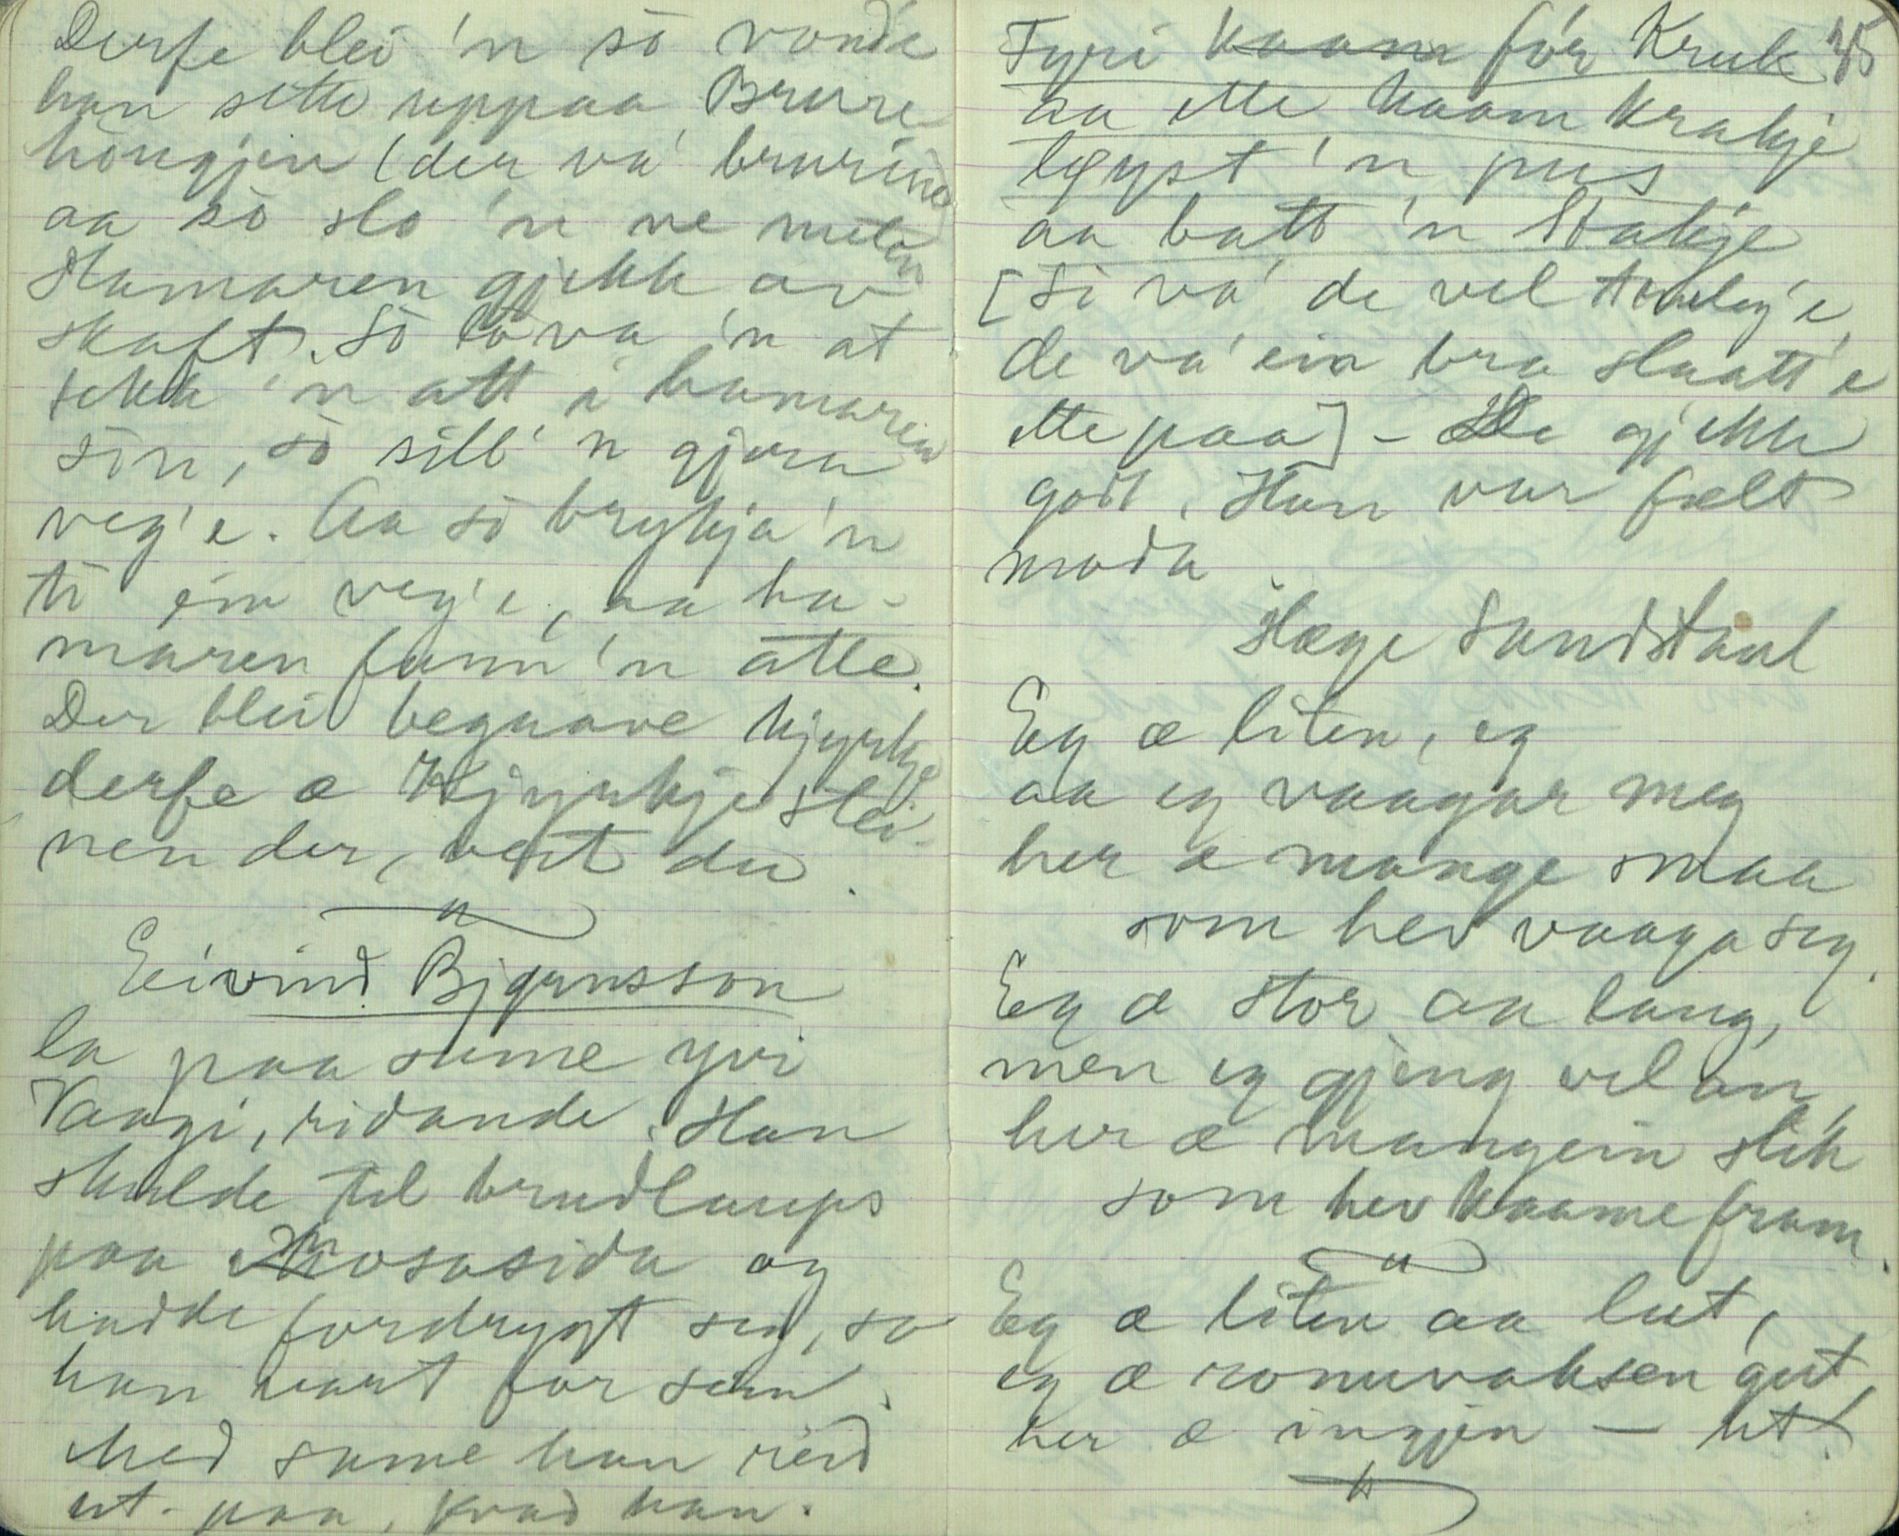 Derfe blei 'n sò vond'e
han sette uppaa Brure
hòugjen (der va' brurine
aa sò slo 'n ne meten
Hamaren gjekk av
skaft. Sò lòva 'n at
fekk 'n att i hamaren
sin, sò sill' 'n gjera
veg'e. Aa sò brykja 'n
ti ein veg'e, aa ha-
maren funn 'n atte.
Der blei begnave kjyrkje
derfe æ Kjyrkjestei-
nen der, veit du.
Eivind Bjørnsson
la paa sume yvi
Vaagi, ridande. Han
skulde til brudlaups
paa Mosasida og
hadde fordrygt seg, so
han vart for sein.
Med same han reid
ut-paa, kvad han.
35
Fyri kaam fór Kruk
aa ette kaam Krakje
løyst 'n pus
aa batt 'n Stakje
[Si va' de vel tomleg'e,
de va' ein bra slaatt'e
ette paa] - De gjekk
godt. Han var fælt
moda
Hæge Sundstaul
Eg æ liten, eg
aa eg vaagar meg
her æ mange smaa
som hev vaaga seg.
Eg æ stor aa lang,
men eg gjeng vel an,
her æ mangein slik
som hev kaame fram.
Eg æ liten aa lut,
eg æ romuvaksen gut,
her æ ingjen — ut!